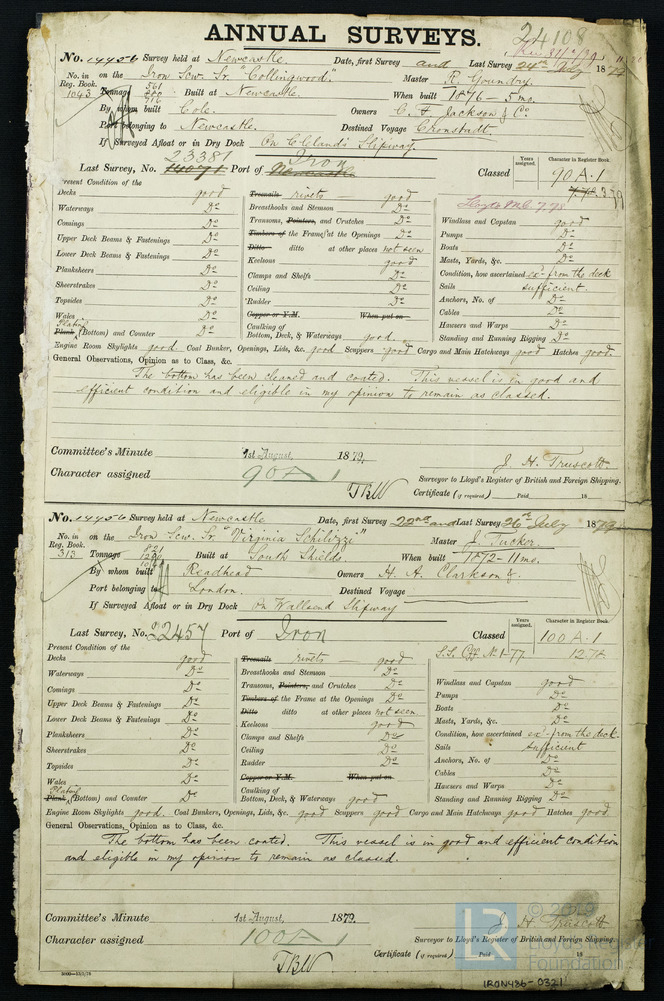 24108
ANNUAL SURVEYS.
No. 14456 Survey held at Newcastle Date, first Survey and Last Survey 24th July 1879
No. in Reg. Book. on the Iron Scw. Sr. "Collingwood" Master R. Goundry
1043 Tonnage 561 716 Built at Newcastle When built 1876 - 5 mo.
By whom built Cole Owners C. F. Jackson & Co
Port belonging to Newcastle. Destined Voyage Cronstadt
If Surveyed Afloat or in Dry Dock On Clelands Slipway
23381 Iron
Last Survey, No. 14071 Port of Newcastle Classed Years assigned. Character in Register Book.
90 A.1
Present Condition of the
Decks good Treenails rivets — good Lloyds M.C. 7.78
Waterways Do Breasthooks and Stemson Do Windlass and Capstan good
Comings Do Transoms, Pointers, and Crutches Do Pumps Do
Upper Deck Beams & Fastenings Do Timbers of the Frame at the Openings Do Boats Do
Lower Deck Beams & Fastenings Do Ditto ditto at other places not seen Masts, Yards, &c. Do
Planksheers Do Keelsons good Condition, how ascertained exn from the deck
Sheerstrakes Do Clamps and Shelfs Do Sails sufficient
Topsides Do Ceiling Do Anchors, No. of Do
Wales Do Rudder Do Cables Do
Plating Copper or Y.M. When put on Hawsers and Warps Do
Plank (Bottom) and Counter Do Caulking of Bottom, Deck, & Waterways good Standing and Running Rigging Do
Engine Room Skylights good. Coal Bunker, Openings, Lids, &c. good Scuppers good Cargo and Main Hatchways good Hatches good.
General Observations, Opinion as to Class, &c.
The bottom has been cleaned and coated. This vessel is in good and
efficient condition and eligible in my opinion to remain as classed.
Committee's Minute 1st August, 1879.
Character assigned 90 A 1 J. H. Truscott.
Surveyor to Lloyd's Register of British and Foreign Shipping.
TBW Certificate (if required) Paid 18
No. 14456 Survey held at Newcastle Date, first Survey 22nd and Last Survey 26th July 1879
No. in Reg. Book. on the Iron Scw. Sr. "Virginia Schilizzi" Master J. Tucker
313 Tonnage 821 Built at South Shields When built 1872 - 11 mo.
By whom built Readhead Owners H. A. Clarkson &.
Port belonging to London. Destined Voyage
If Surveyed Afloat or in Dry Dock On Wallsend Slipway
Last Survey, No. 22457 Port of Iron Classed Years assigned. Character in Register Book.
100 A.1
Present Condition of the S.S. Cff No. 1-77 12.78
Decks good Treenails rivets — good
Waterways Do Breasthooks and Stemson Do Windlass and Capstan good
Comings Do Transoms, Pointers, and Crutches Do Pumps Do
Upper Deck Beams & Fastenings Do Timbers of the Frame at the Openings Do Boats Do
Lower Deck Beams & Fastenings Do Ditto ditto at other places not seen Masts, Yards, &c. Do
Planksheers Do Keelsons good Condition, how ascertained exn from the deck.
Sheerstrakes Do Clamps and Shelfs Do Sails sufficient
Topsides Do Ceiling Do Anchors, No. of Do
Wales Do Rudder Do Cables Do
Plating Copper or Y.M. When put on Hawsers and Warps Do
Plank (Bottom) and Counter Do Caulking of Bottom, Deck, & Waterways good Standing and Running Rigging Do
Engine Room Skylights good. Coal Bunkers, Openings, Lids, &c. good Scuppers good Cargo and Main Hatchways good Hatches good.
General Observations, Opinion as to Class, &c.
The bottom has been coated. This vessel is in good and efficient condition
and eligible in my opinion to remain as classed.
Committee's Minute 1st August, 1879.
Character assigned 100 A 1 J. H. Truscott
Surveyor to Lloyd's Register of British and Foreign Shipping.
TBW Certificate (if required) Paid 18
LR
Foundation
IRON486-0321